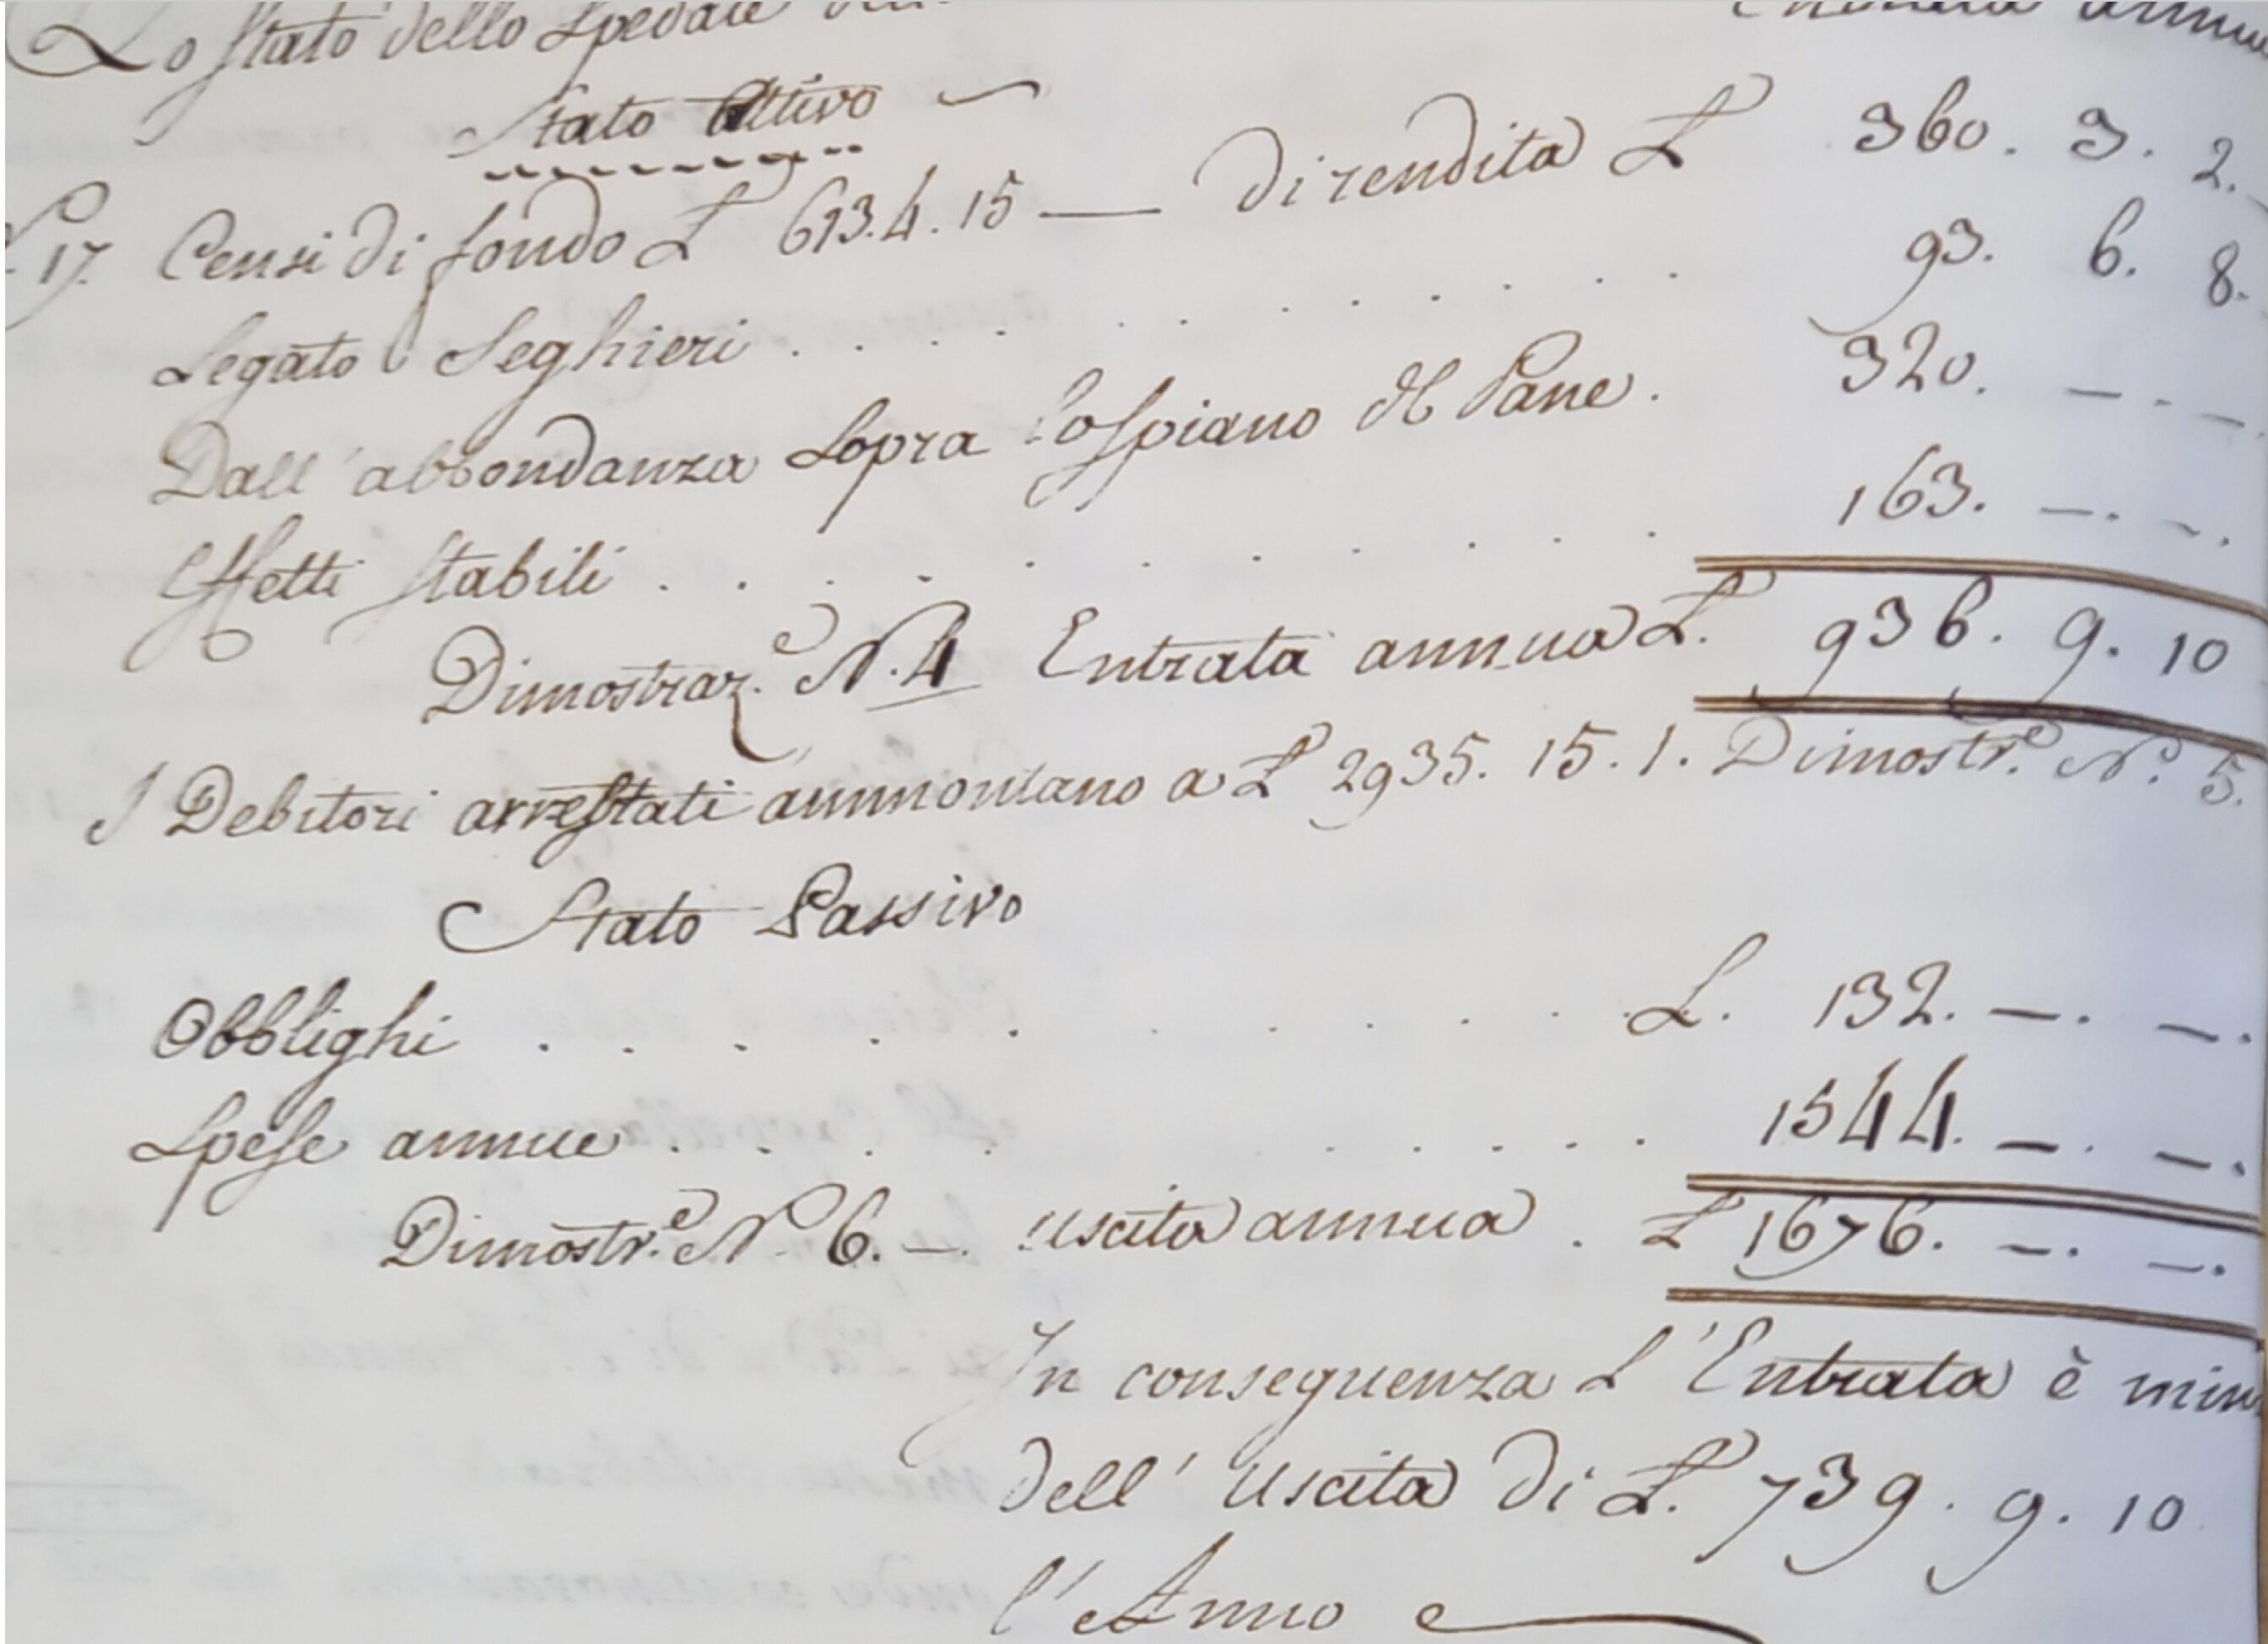 Lo Stato dello Spedale
Entrata annua
Stato Attivo
N.° 17. Censi di fondo L 613.4.15 — di rendita L 360. 3. 2.
Legato Seghieri . . . . . . . . . . 93. 6. 8.
Dall'abbondanza sopra l'ospiano del Pane. 320. — . —
Effetti stabili . . . . . . . . . . 163. —. —.
Dimostraz.e N. 4 Entrata annua L. 936. 9. 10
I Debitori arrestati ammontano a L 2935. 15. 1. Dimostr.e N.° 5.
Stato Passivo
Obblighi . . . . . . . . . . L. 132. —. —.
Spese annue . . . . . . . . . . 1544. —. —.
Dimostr.e N.° 6. —. uscita annua . L 1676. —. —.
In conseguenza L'Entrata è
dell'Uscita di L. 739. 9. 10
l'Anno